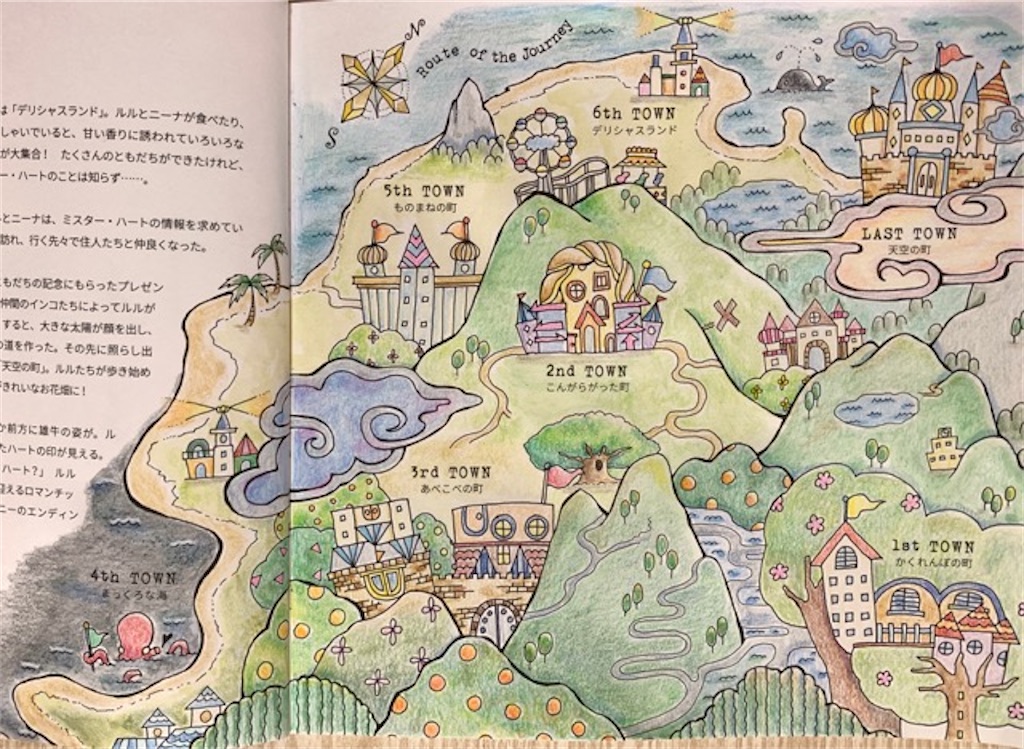 は「デリシャスランド」。ルルとニーナが食べたり、
しゃいでいると、甘い香りに誘われていろいろな
が大集合！ たくさんのともだちができたけれど、
ー・ハートのことは知らず……。
とニーナは、ミスター・ハートの情報を求めてい
訪れ、行く先々で住人たちと仲良くなった。
ともだちの記念にもらったプレゼン
仲間のインコたちによってルルが
すると、大きな太陽が顔を出し、
の道を作った。その先に照らし出
「天空の町」。ルルたちが歩き始め
きれいなお花畑に！
か前方に雄牛の姿が。ル
たハートの印が見える。
ハート？」 ルル
迎えるロマンチッ
ニーのエンディン
N
S
Route of the Journey
6th TOWN
デリシャスランド
5th TOWN
ものまねの町
LAST TOWN
天空の町
2nd TOWN
こんがらがった町
3rd TOWN
あべこべの町
1st TOWN
かくれんぼの町
4th TOWN
まっくろな海